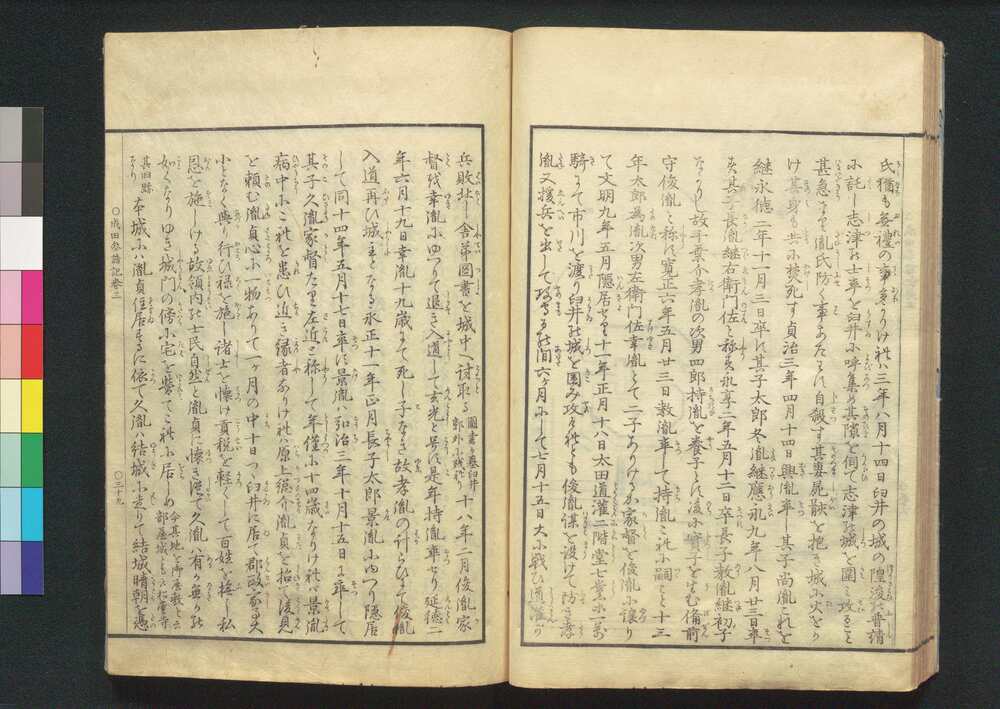 氏胤も無禮の事多かりけれバ三年八月十四日臼井の城の隍浚の普請
に託し志津の士卒を臼井に呼集め其隙を伺て志津の城を圍ミ攻ること
甚急なり氏胤防く事あたハず自殺す其妻屍骸を抱き城に火をか
け其身も共に焚死す貞治三年四月十四日興胤卒し其子尚胤これを
継永徳二年十一月三日卒ス其子太郎冬胤継應永九年八月廿三日卒
す其子長胤継右衛門佐と称す永享二年五月十二日卒長子教胤継初子
なかりし故千葉介孝胤の次男四郎持胤を養子とす後に實子を生む備前
守俊胤と称す寛正六年五月廿三日教胤卒して持胤これに嗣こと十三
年太郎為胤次男左衛門佐幸胤とて二子ありけるか家督を俊胤に譲り
て文明九年五月隠居せり十一年正月十八日太田道灌二階堂七資忠一万
騎にて市川を渡り臼井の城を圍み攻けれども俊胤謀を設けて防き孝
胤又援兵を出して攻るの間六ヶ月にして七月十五日大に戦ひ道灌か
兵敗北し舎弟圖書を城中へ討取る 圖書か墓臼井郭外に残れり 十八年二月俊胤家
督を幸胤にゆつりて退き入道して玄光と号す是年持胤卒せり延徳二
年六月十九日幸胤十九歳にて死し子なき故孝胤の計らひにて俊胤
入道再ひ城主となる永正十一年正月長子太郎景胤にゆつり隠居
して同十四年五月十七日卒す景胤ハ弘治三年十月十五日に卒して
其子久胤家督たり左近と称して年僅に十四歳なりけれバ景胤
病中にこれを患ひ近き縁者なりけれバ原上總介胤貞を招て後見
と頼む胤貞心に物ありて一ヶ月の中十日つゝ臼井に居て郡政家事大
小となく與り行ひ禄を施し諸士を懐け貢税を軽くして百姓を撫し私
恩を施しける故領内の士民自然と胤貞に懐き慿て久胤ハ有か無かの
如くなりゆき城門の傍に宅を營てこれに居らしめ 今其地を御屋敷と云部屋城とも云松屋寺
其旧跡なり 本城にハ胤貞住居するに依て久胤ハ結城に走りて結城晴朝を慿
○成田参詣記巻三
○三十九